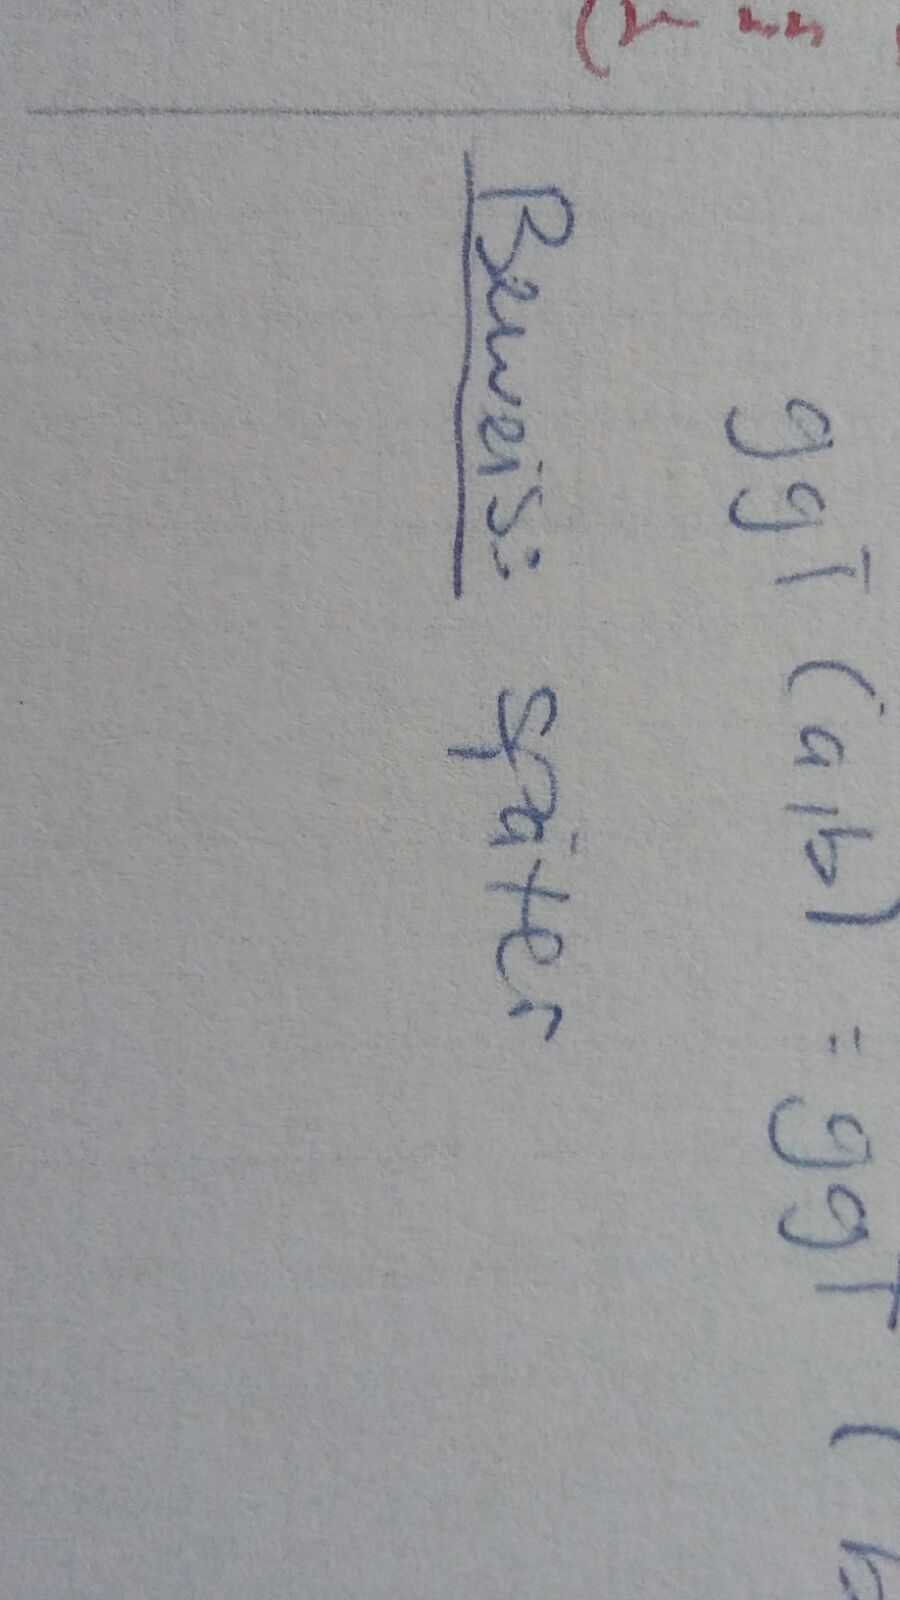 ggT (a,b) = ggT (b
Beweis: später